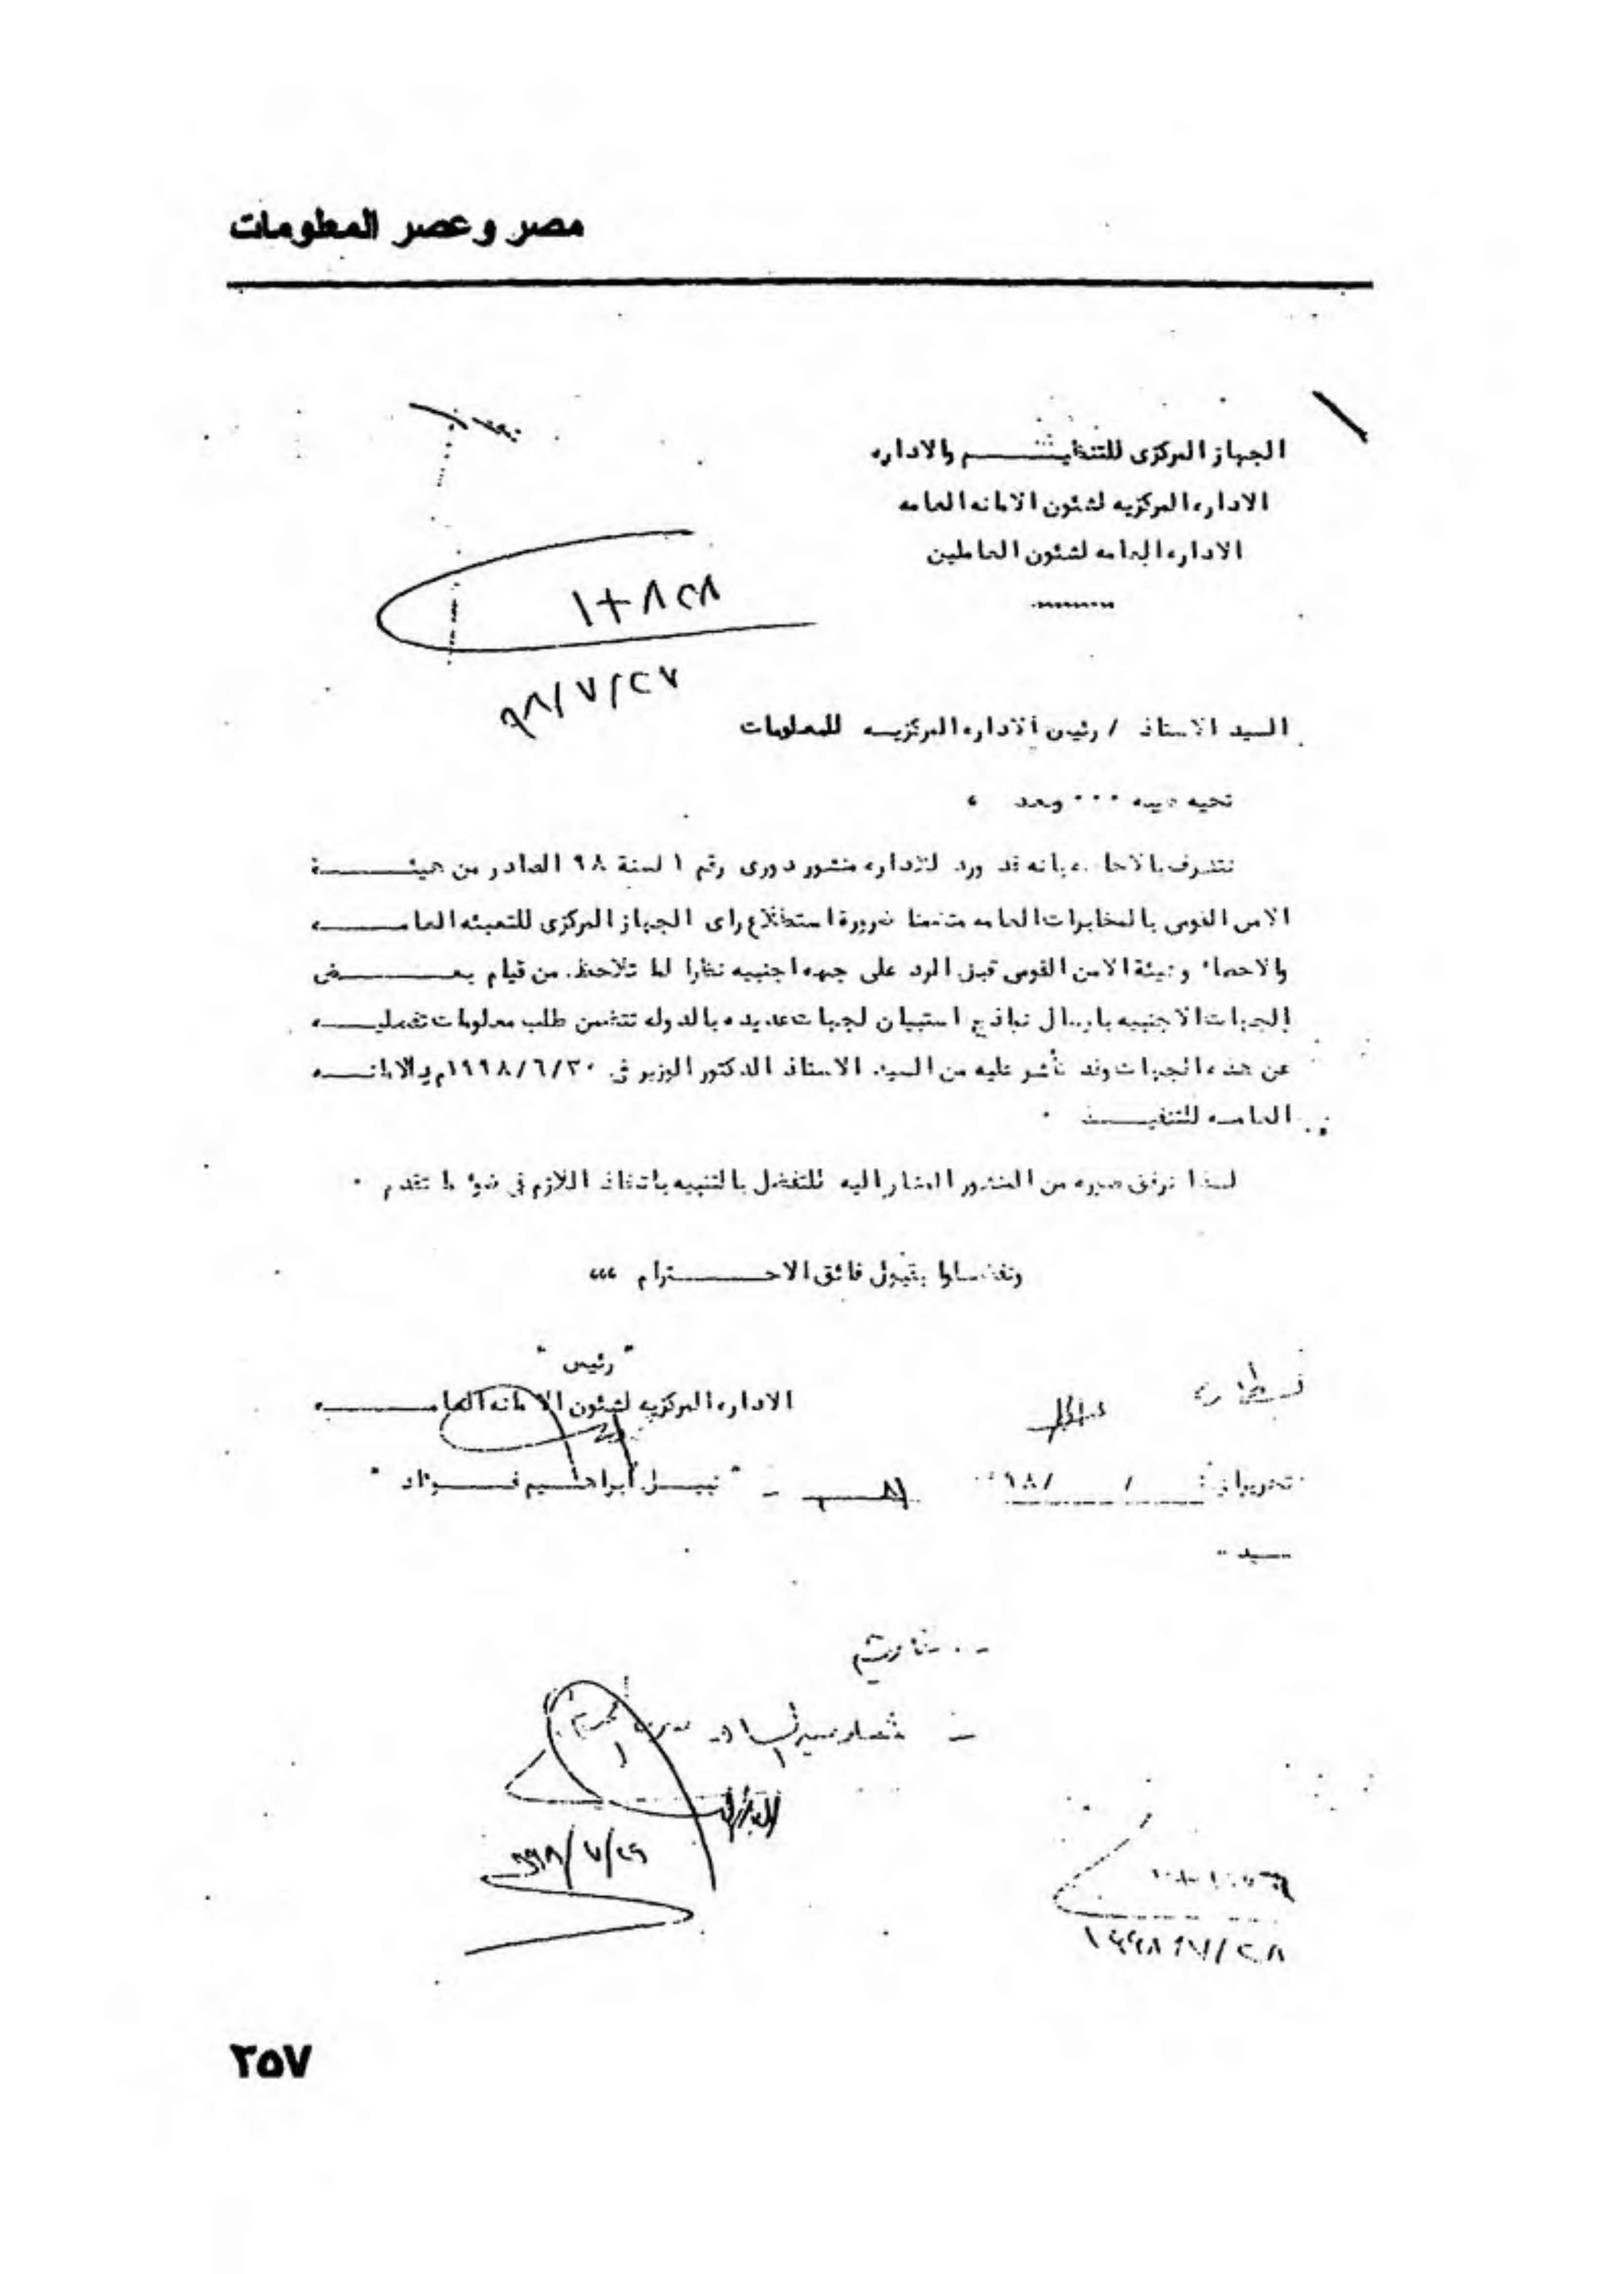 مصر وعصر المعلومات
الجهاز المركزى للتنظيم والاداره
الاداره المركزيه لشئون الامانه العامه
الاداره العامه لشئون العاملين
١+٨٢٨
٩٨/٧/٢٧
السيد الاستاذ / رئيس الاداره المركزيه للمعلومات
تحيه طيبه ٠٠٠ وبعد ،
نتشرف بالاحاطه بانه قد ورد للاداره منشور دورى رقم ١ لسنة ٩٨ الصادر من هيئة
الامن القومى بالمخابرات العامه متضمنا ضرورة استطلاع راى الجهاز المركزى للتعبئه العامه
والاحصاء وهيئة الامن القومى قبل الرد على جهه اجنبيه نظرا لما تلاحظ من قيام بعض
الجهات الاجنبيه بارسال نماذج استبيان لجهات عديده بالدوله تتضمن طلب معلومات تفصيليه
عن هذه الجهات وقد تأشر عليه من السيد الاستاذ الدكتور الوزير فى ١٩٩٨/٦/٣٠م الامانه
العامه للتنفيذ ٠
لهذا نرفق صوره من المنشور المشار اليه للتفضل بالتنبيه باتخاذ اللازم فى ضوء ما تقدم ٠
وتفضلوا بقبول فائق الاحترام ،،،
" رئيس "
الاداره المركزيه لشئون الامانه العامه
تحريرا فى : / / ٩٨
" نبيل ابراهيم فؤاد "
سيد ..
٩٩٨/٧/٢٩
١٩٩٨/٧/٢٨
٢٥٧